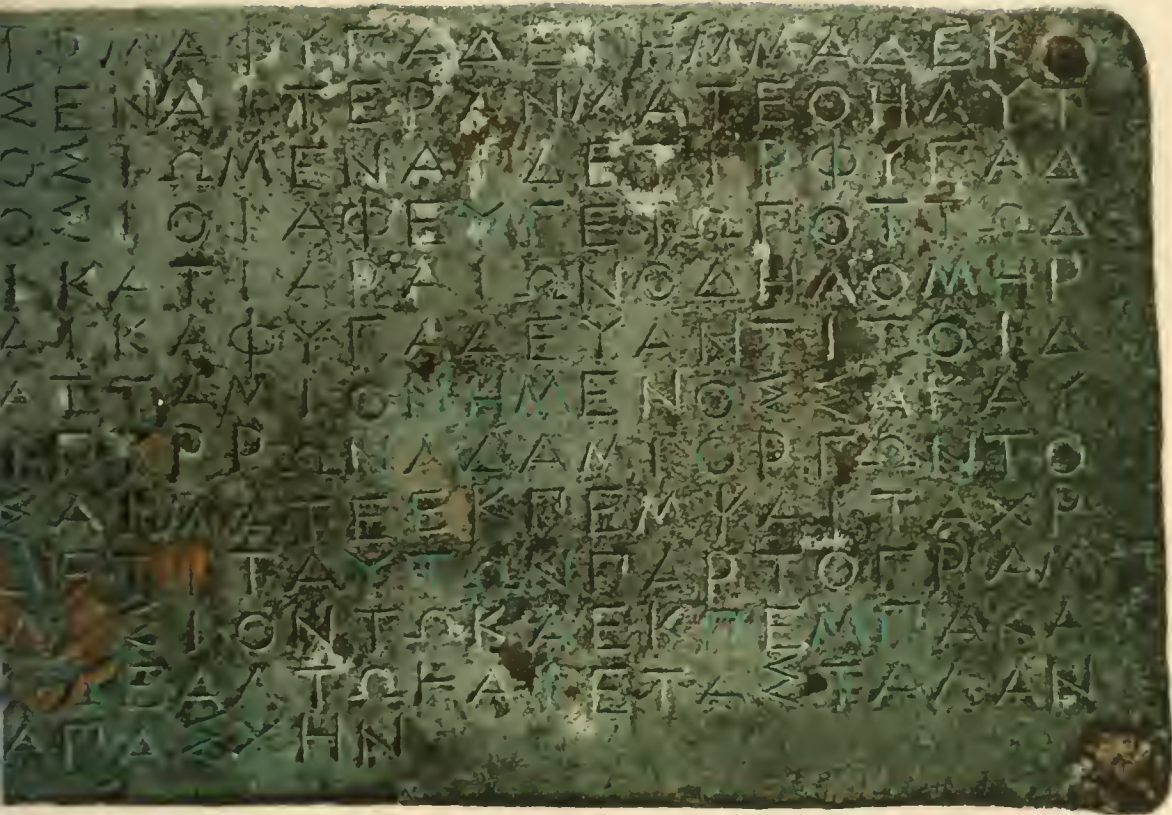 ΙΡΜΑΦΥΓΑΔΕΙΗΜΜΑΔΕΚ
ΣΕΝΑΙΤΕΡΑΝΜΑΤΕΘΗΛΥΤ
ΟΣΙΩΜΕΝΑΙΔΕΤΙΡΦΥΓΑΔ
ΟΣΙΟΙΑΦΕΥΓΕΤΩΠΟΤΤΩΔ
ΙΚΑΤΙΑΡΑΙΩΝΟΔΗΛΟΜΗΡ
ΑΙΚΑΦΥΓΑΔΕΥΑΝΤΙΤΟΙΔ
ΑΤΤΑΜΙΟΝΗΜΕΝΟΣΣΑΚΑΥ
ΙΠΥΡΡΩΝΑΔΑΜΙΟΡΓΩΝΤΟ
ΣΑΙΜΑΤΕΕΚΠΕΜΨΑΙΤΑΧΡ
ΔΕΤΙΤΑΥΤΩΝΠΑΡΤΟΓΡΑΜ
ΑΣΙΟΝΤΩΚΑΕΚΠΕΜΠΑΚΑ
ΔΕΑΛΤΩΗΑΙΕΤΑΣΤΑΛΑΝ
ΑΠΑΣΧΗΝ